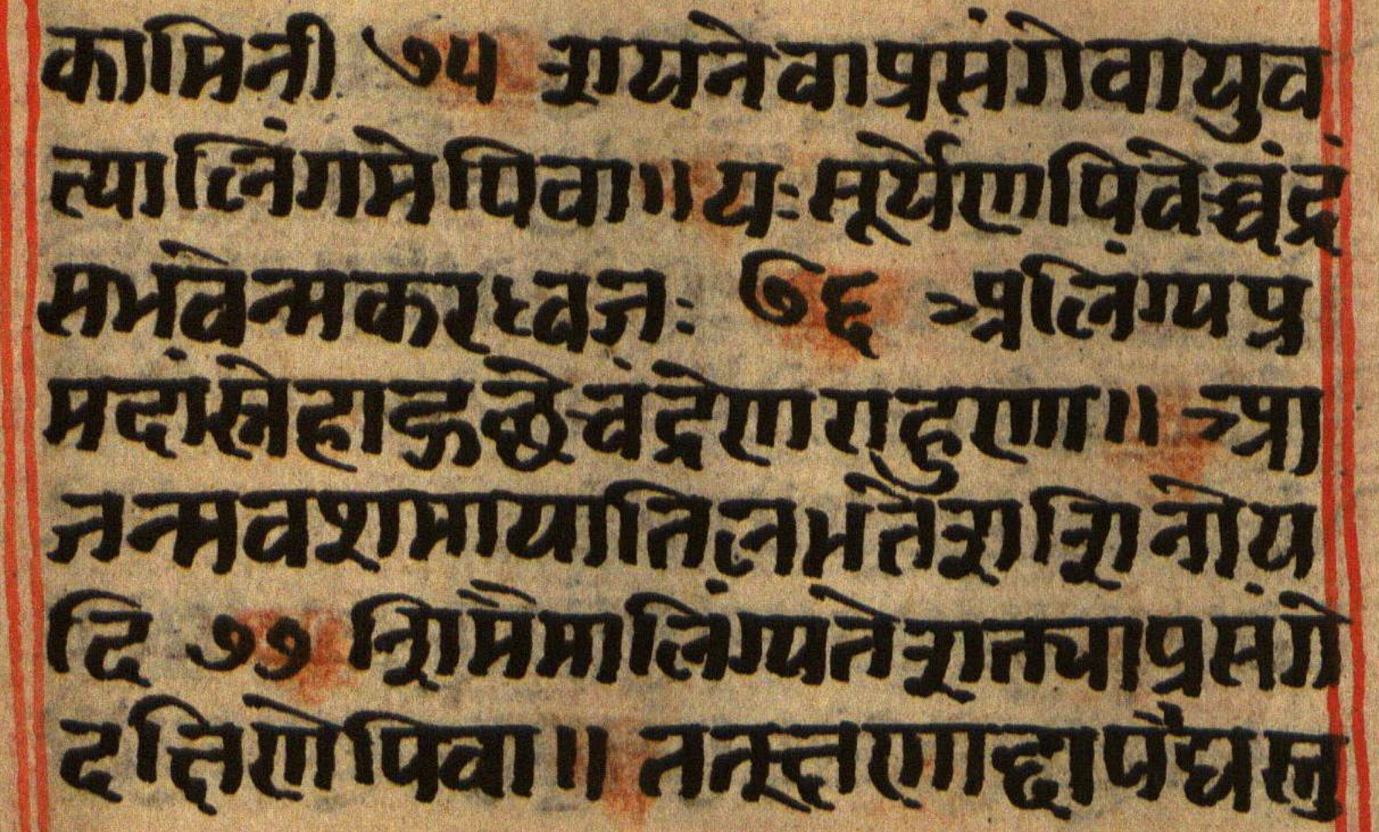 कामिनी ७५ शयनेवाप्रसंगेवायुव
त्यालिंगमेपिवा॥यःसूर्येणपिवेच्चंद्रं
सभवेन्मकरध्वजः ७६ आलिंग्यप्र
मदांस्नेहाऊछेचंद्रेणराहुणा॥आ
जन्मवशमायातिलभतेशशिनोय
दि ७७ शिमेमालिंग्यतेशक्त्याप्रसंगे
दक्षिणेपिवा॥ तत्क्षणाद्दापयेद्यस्तु